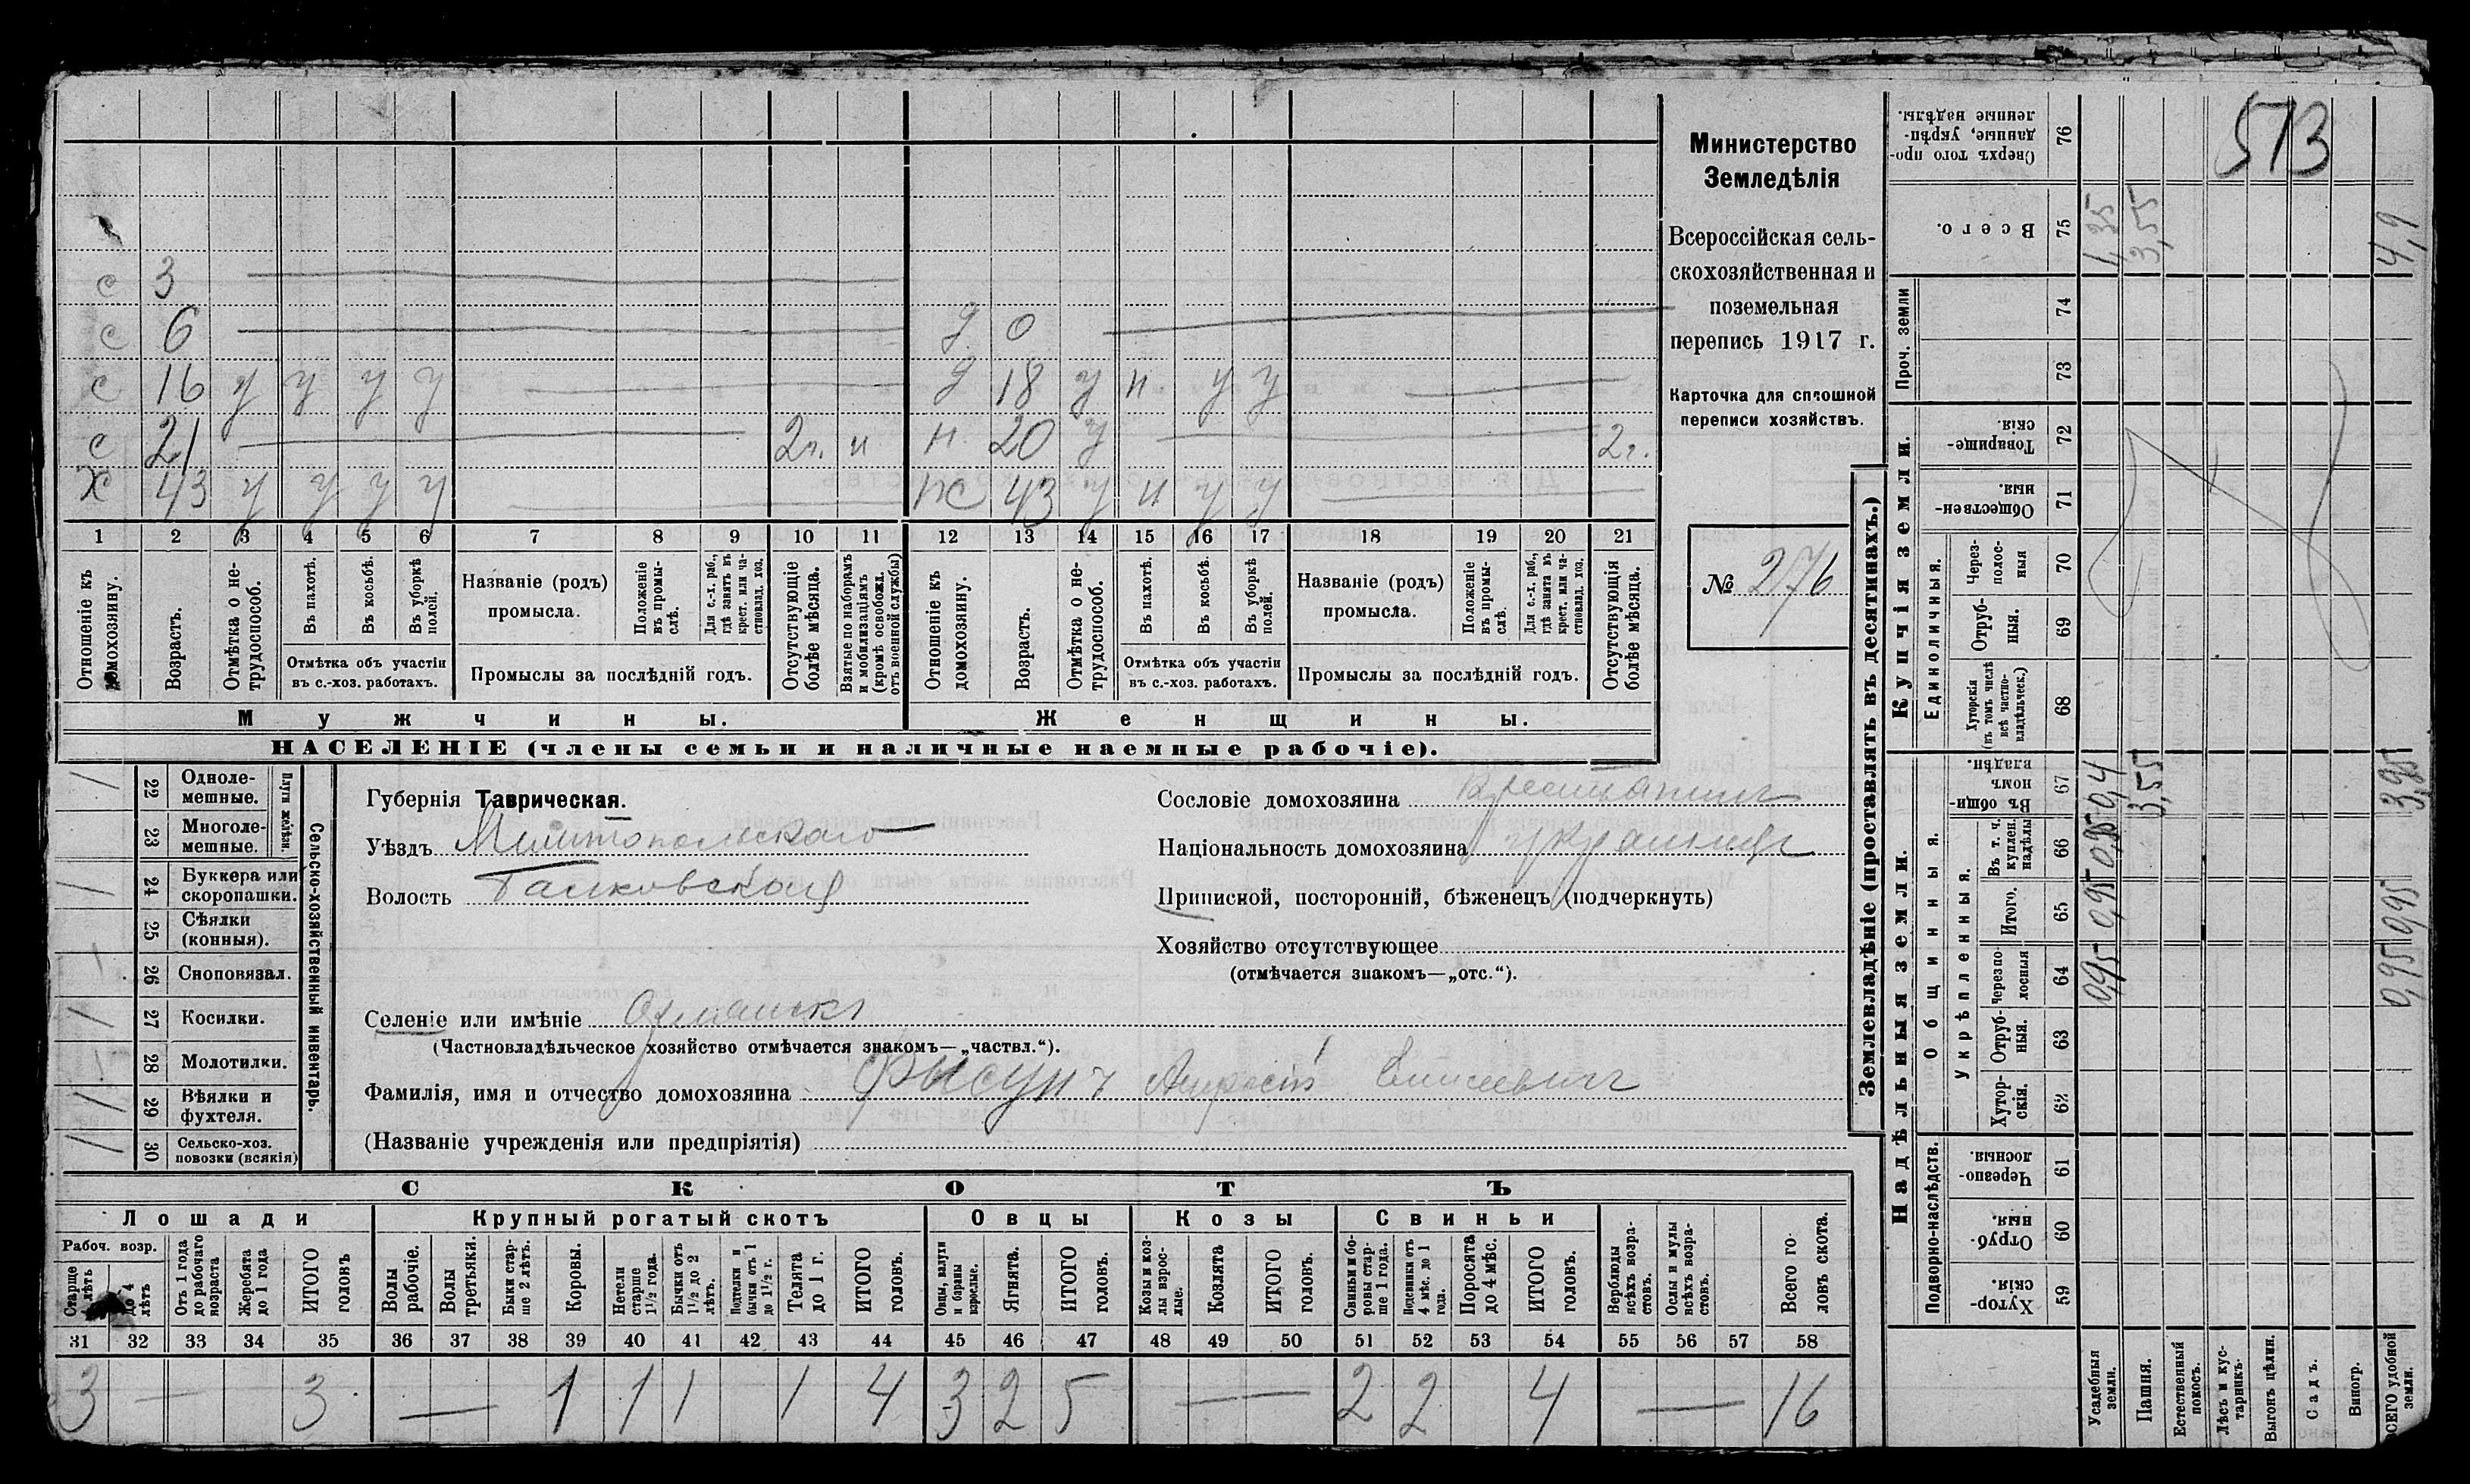 513
Министерство
Земледѣлія
Всероссійская сель-
скохозяйственная и
поземельная
перепись 1917 г.
Карточка для сплошной
переписи хозяйствъ.
№ 276
с 3
с 6 д 0
с 16 у у у у д 18 у н у у
с 21 2г. н н 20 у 2г.
х 43 у у у у ж 43 у н у у
1 2 3 4 5 6 7 8 9 10 11 12 13 14 15 16 17 18 19 20 21
Отношеніе къ домохозяину.
Возрастъ.
Отмѣтка о не-трудоспособ.
Въ пахотѣ.
Въ косьбѣ.
Въ уборкѣ полей.
Отмѣтка объ участіи
въ с.-хоз. работахъ.
Названіе (родъ)
промысла.
Положеніе въ промы-слѣ.
Для с.-х. раб., гдѣ занятъ въ крест. или ча-стновлад. хоз.
Промыслы за послѣдній годъ.
Отсутствующіе болѣе мѣсяца.
Взятые по наборамъ и мобилизаціямъ (кромѣ освобожд. отъ военной службы)
Отношеніе къ домохозяину.
Возрастъ.
Отмѣтка о не-трудоспособ.
Въ пахотѣ.
Въ косьбѣ.
Въ уборкѣ полей.
Отмѣтка объ участіи
въ с.-хоз. работахъ.
Названіе (родъ)
промысла.
Положеніе въ промы-слѣ.
Для с.-х. раб., гдѣ занята въ крест. или ча-стновлад. хоз.
Промыслы за послѣдній годъ.
Отсутствующія болѣе мѣсяца.
Мужчины. Женщины.
НАСЕЛЕНІЕ (члены семьи и наличные наемные рабочіе).
Сельско-хозяйственный инвентарь.
Плуги желѣзн.
22 Одноле-мешные.
23 Многоле-мешные.
24 Буккера или скоропашки.
25 Сѣялки (конныя).
26 Сноповязал.
27 Косилки.
28 Молотилки.
29 Вѣялки и фухтеля.
30 Сельско-хоз. повозки (всякія)
Губернія Таврическая.
Уѣздъ Мелитопольскаго
Волость
Селеніе или имѣніе
(Частновладѣльческое хозяйство отмѣчается знакомъ—„частвл.“).
Фамилія, имя и отчество домохозяина Фысунъ Андрей Елисеевич
(Названіе учрежденія или предпріятія)
Сословіе домохозяина Крестьянинъ
Національность домохозяина украинецъ
Приписной, посторонній, бѣженецъ (подчеркнуть)
Хозяйство отсутствующее
(отмѣчается знакомъ—„отс.“).
СКОТЪ
Лошади Крупный рогатый скотъ Овцы Козы Свиньи
Рабоч. возр.
Старше лѣтъ
до 4 лѣтъ
Отъ 1 года до рабочаго возраста
Жеребята до 1 года
ИТОГО головъ
Волы рабочіе.
Волы третьяки.
Быки стар-ше 2 лѣтъ.
Коровы.
Нетели старше 1½ года.
Бычки отъ 1½ до 2 лѣтъ.
Подтелки и бычки отъ 1 до 1½ г.
Телята до 1 г.
ИТОГО головъ.
Овцы, валухи и бараны взрослые.
Ягнята.
ИТОГО головъ.
Козы и коз-лы взрос-лые.
Козлята
ИТОГО головъ.
Свиньи и бо-ровы стар-ше 1 года.
Подсвинки отъ 4 мѣс. до 1 года.
Поросята до 4 мѣс.
ИТОГО головъ.
Верблюды всѣхъ возра-стовъ.
Ослы и мулы всѣхъ возра-стовъ.
Всего го-ловъ скота.
31 32 33 34 35 36 37 38 39 40 41 42 43 44 45 46 47 48 49 50 51 52 53 54 55 56 57 58
3 — 3 — 1 1 1 1 4 3 2 5 — 2 2 4 — 16
Землевладѣніе (проставлять въ десятинахъ.)
Надѣльныя земли. Купчія земли. Проч. земли
Подворно-наслѣдств. Общинныя. Единоличныя.
Укрѣпленныя.
59 Хутор-скія.
60 Отруб-ныя.
61 Черезпо-лосныя.
62 Хутор-скія.
63 Отруб-ныя.
64 Черезпо-лосныя
65 Итого.
66 Въ т. ч. куплен. надѣлы
67 Въ общин-номъ владѣн.
68 Хуторскія (въ томъ числѣ всѣ частно-владѣльческ.)
69 Отруб-ныя.
70 Через-полос-ныя
71 Обществен-ныя.
72 Товарище-скія.
73
74
75 Всего.
76 Сверхъ того про-данные, укрѣп-ленные надѣлы.
Усадебныя земли. 0,95 0,95 0,95 0,4 1,35
Пашня. 3,55 3,55
Естественный покосъ.
Лѣсъ и кус-тарникъ.
Выгонъ цѣлин.
Садъ.
Виногр.
ВСЕГО удобной земли. 0,95 0,95 3,95 4,9